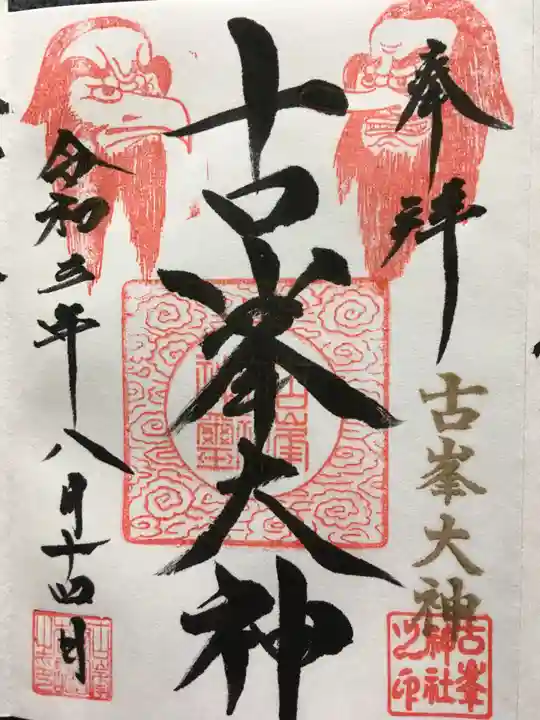 奉拝
古峯大神
古峯大神
古峯
神社
之印
令和三年八月十四日